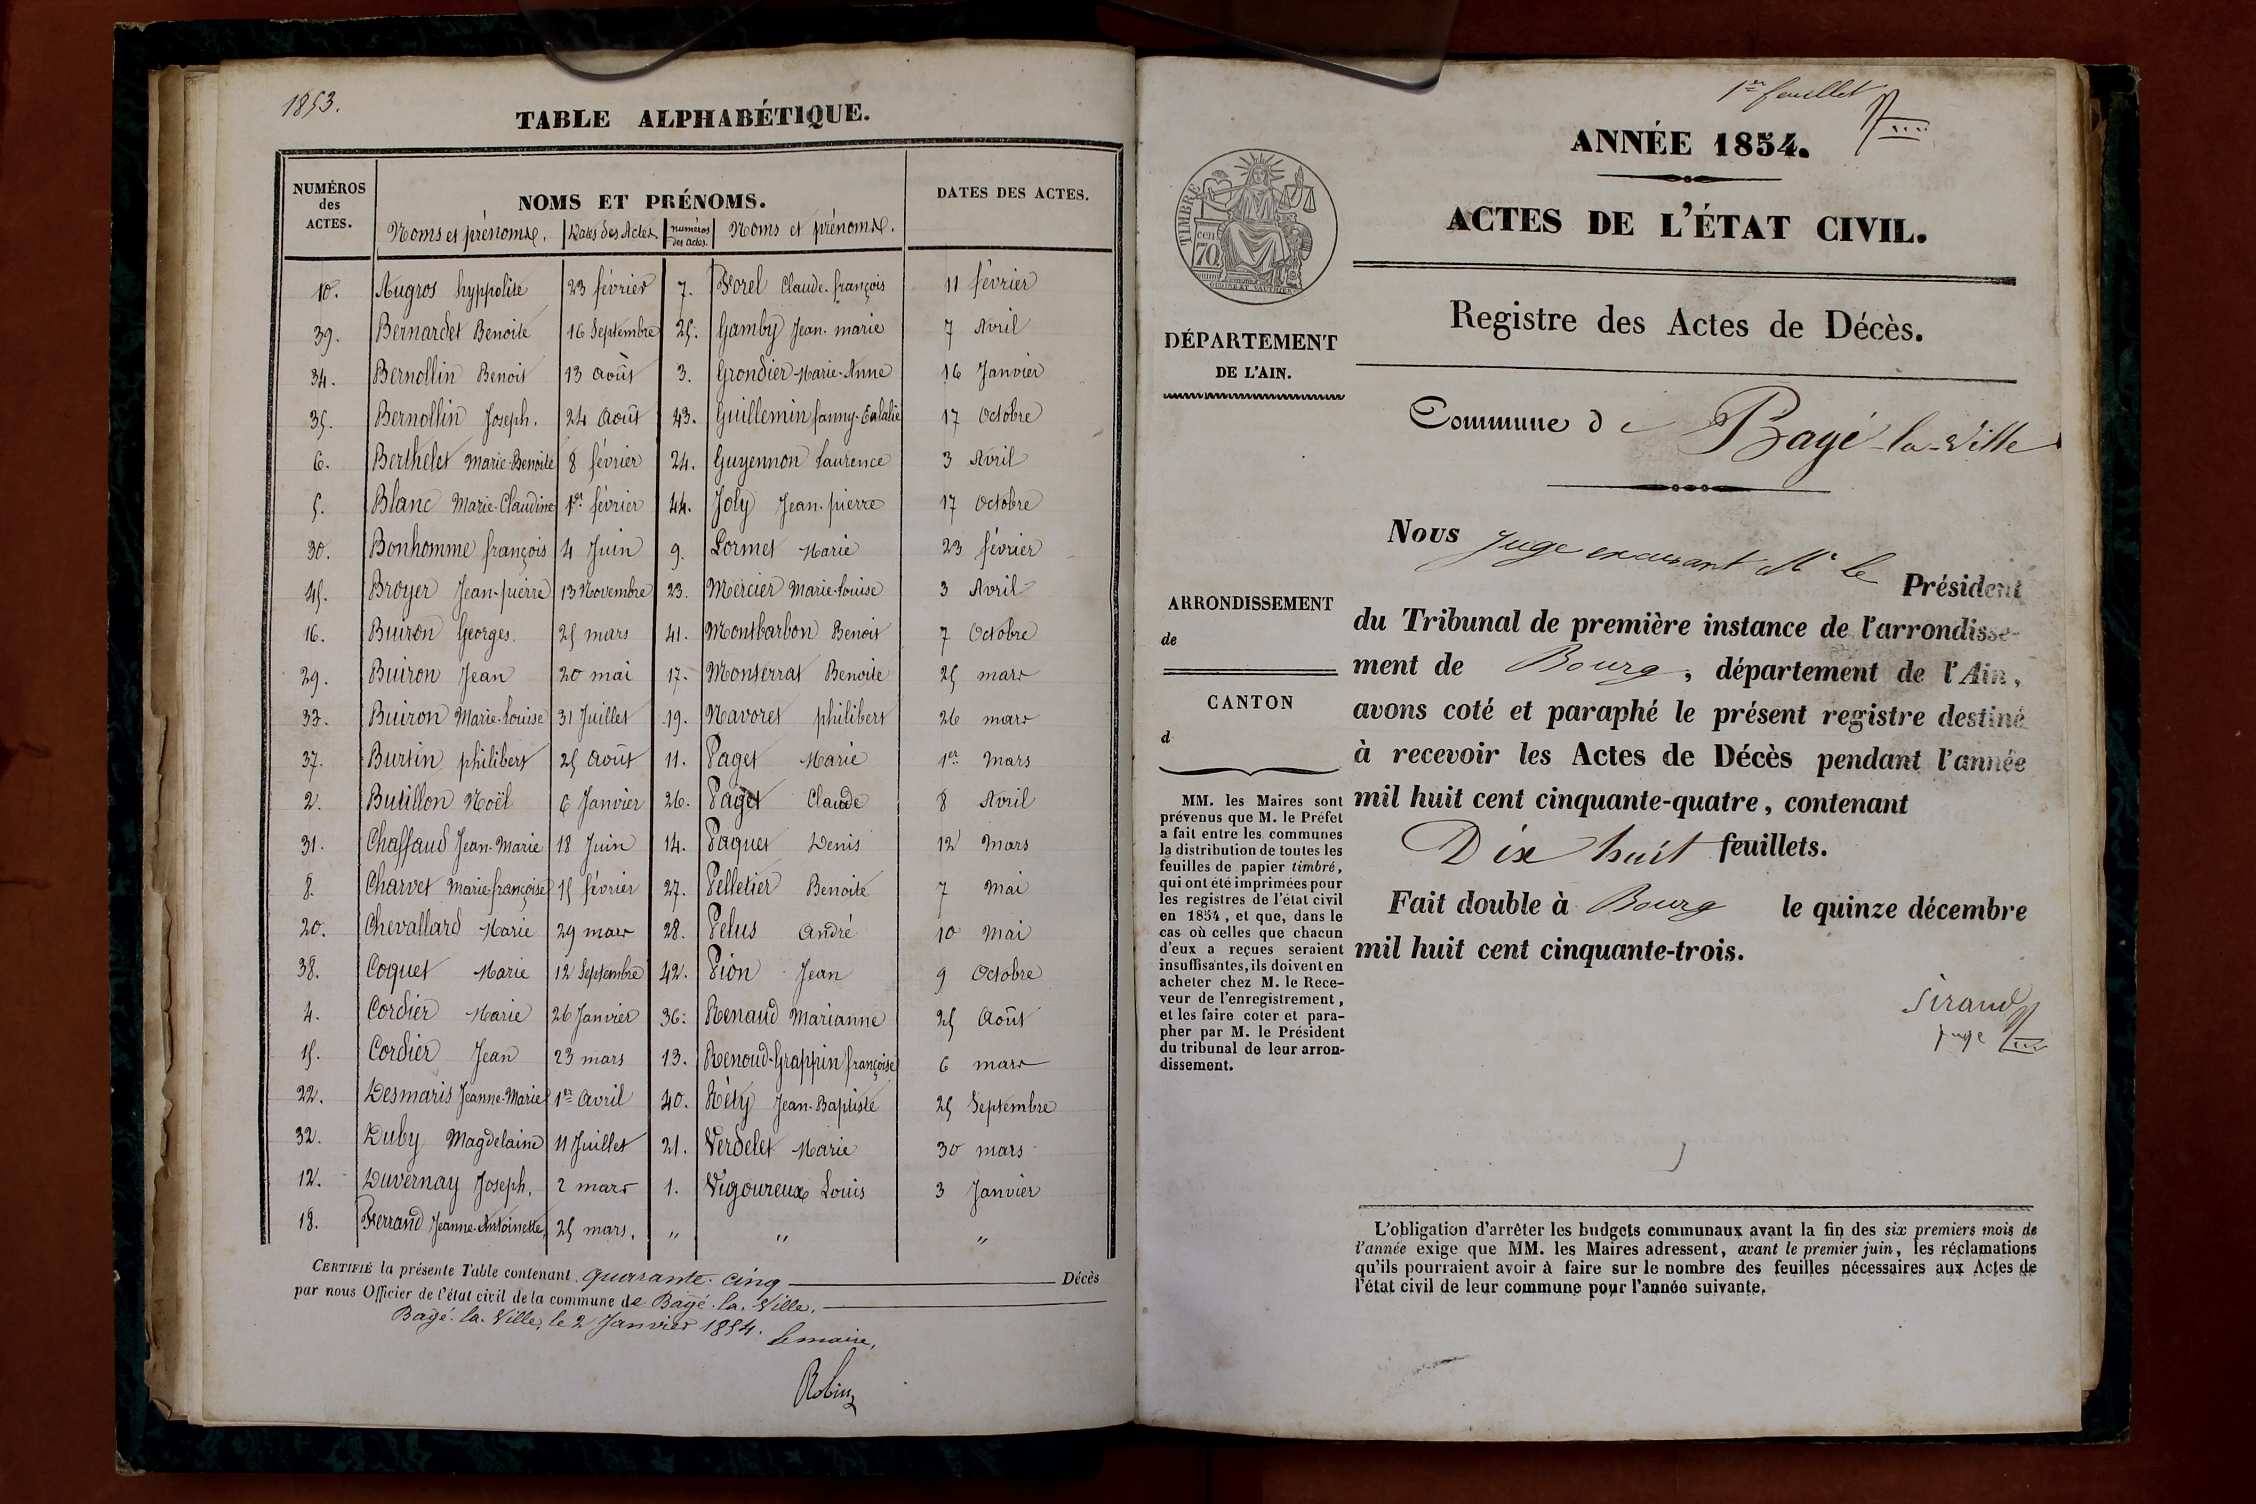 1853.
TABLE ALPHABÉTIQUE.
NUMÉROS des ACTES. NOMS ET PRÉNOMS. DATES DES ACTES.
Noms et prénoms. Dates des Actes numéros des actes. Noms et prénoms.
10. Augros hyppolite 23 février 7. Forel Claude-françois 11 février
39. Bernardet Benoite 16 Septembre 25. Gamby Jean-marie 7 Avril
34. Bernollin Benoit 13 Août 3. Grondier Marie-Anne 16 Janvier
35. Bernollin Joseph. 24 Août 43. Guillemin fanny-Eulalie 17 Octobre
6. Berthelet Marie-Benoite 8 février 24. Guyennon Laurence 3 Avril
5. Blanc Marie-Claudine 1er février 44. Joly Jean-pierre 17 Octobre
30. Bonhomme françois 4 Juin 9. Lormet Marie 23 février
45. Broyer Jean-pierre 13 Novembre 23. Mercier Marie-Louise 3 Avril
16. Buiron Georges. 25 mars 41. Montbarbon Benoit 7 Octobre
29. Buiron Jean 20 mai 17. Monterrat Benoite 25 mars
33. Buiron Marie-Louise 31 Juillet 19. Navoret philibert 26 mars
37. Burtin philibert 25 Août 11. Paget Marie 1er Mars
2. Butillon Noël 6 Janvier 26. Paget Claude 8 Avril
31. Chaffaud Jean-Marie 18 Juin 14. Paquet Denis 12 Mars
8. Charvet Marie-françoise 15 février 27. Pelletier Benoite 7 Mai
20. Chevallard Marie 29 mars 28. Pelus André 10 Mai
38. Coquet Marie 12 Septembre 42. Pion Jean 9 Octobre
4. Cordier Marie 26 Janvier 36. Renaud Marianne 25 Août
15. Cordier Jean 23 mars 13. Renoud-Grappin françoise 6 mars
22. Desmaris Jeanne-Marie 1er Avril 40. Réty Jean-Baptiste 25 Septembre
32. Duby Magdelaine 11 Juillet 21. Verdelet Marie 30 mars
12. Duvernay Joseph. 2 mars 1. Vigoureux Louis 3 Janvier
18. Ferrand Jeanne-Antoinette 25 mars. " " "
CERTIFIÉ la présente Table contenant quarante-cinq Décès
par nous Officier de l'état civil de la commune de Bagé-la-Ville.
Bagé-la-Ville, le 2 Janvier 1854. le maire,
Robin
1er feuillet
ANNÉE 1854.
ACTES DE L'ÉTAT CIVIL.
TIMBRE
cen
70
Registre des Actes de Décès.
DÉPARTEMENT
DE L'AIN.
Commune de Bagé-la-Ville
ARRONDISSEMENT
de
CANTON
d
MM. les Maires sont
prévenus que M. le Préfet
a fait entre les communes
la distribution de toutes les
feuilles de papier timbré,
qui ont été imprimées pour
les registres de l'état civil
en 1854, et que, dans le
cas où celles que chacun
d'eux a reçues seraient
insuffisantes, ils doivent en
acheter chez M. le Rece-
veur de l'enregistrement,
et les faire coter et para-
pher par M. le Président
du tribunal de leur arron-
dissement.
Nous Juge excusant Mr le Président
du Tribunal de première instance de l'arrondisse-
ment de Bourg, département de l'Ain,
avons coté et paraphé le présent registre destiné
à recevoir les Actes de Décès pendant l'année
mil huit cent cinquante-quatre, contenant
Dix huit feuillets.
Fait double à Bourg le quinze décembre
mil huit cent cinquante-trois.
Sirand
juge
L'obligation d'arrêter les budgets communaux avant la fin des six premiers mois de
l'année exige que MM. les Maires adressent, avant le premier juin, les réclamations
qu'ils pourraient avoir à faire sur le nombre des feuilles nécessaires aux Actes de
l'état civil de leur commune pour l'année suivante.